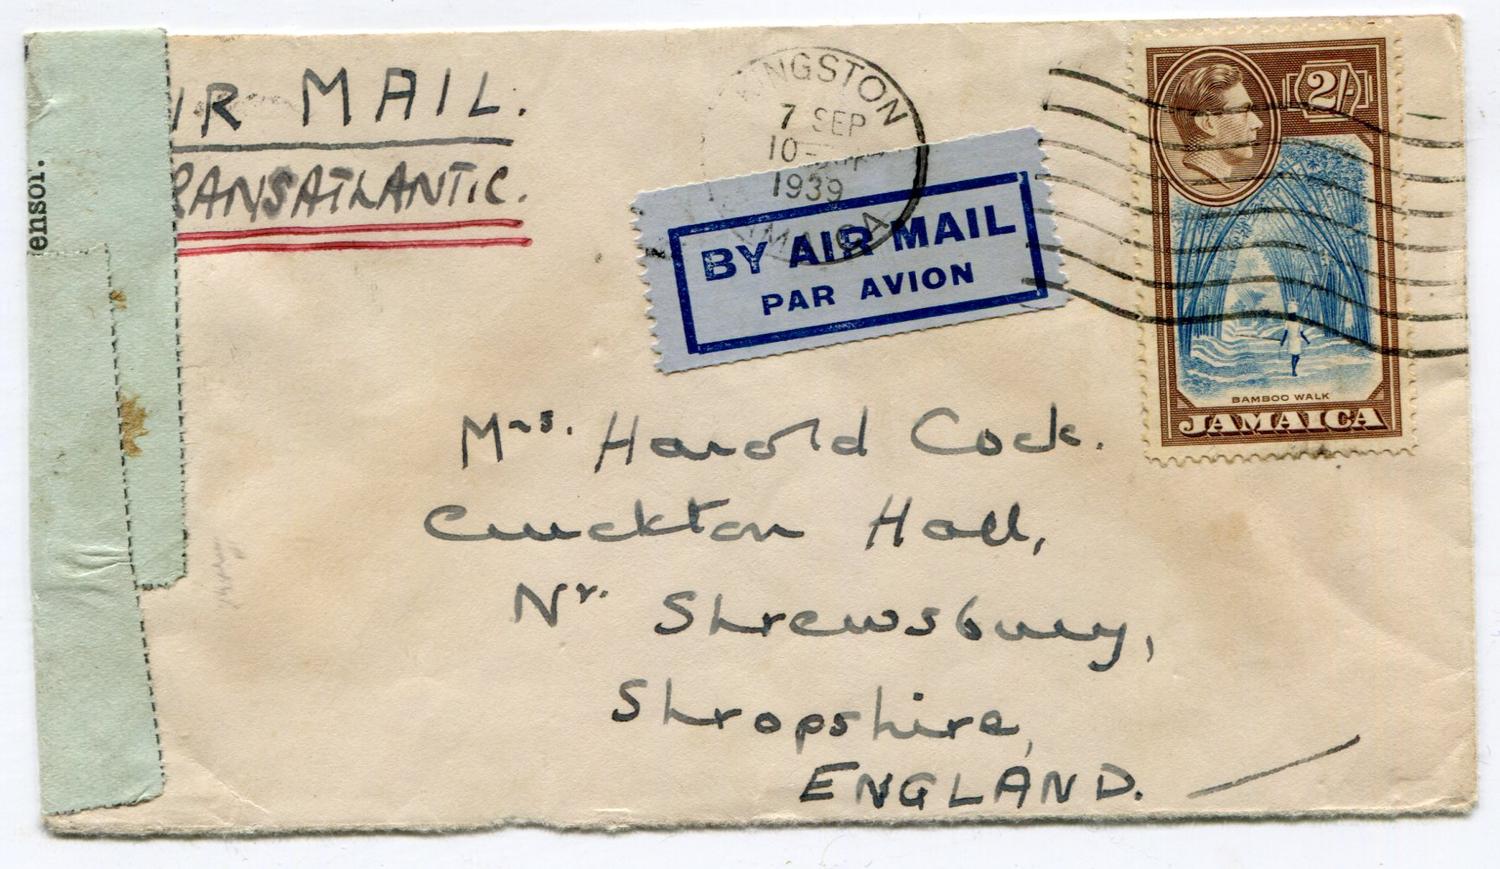 ensor.
IR MAIL.
RANSATLANTIC.
KINGSTON
7 SEP
10-
1939
JAMAICA
BY AIR MAIL
PAR AVION
2/-
BAMBOO WALK
JAMAICA
Mrs. Harold Cock.
Cruckton Hall,
Nr. Shrewsbury,
Shropshire,
ENGLAND.